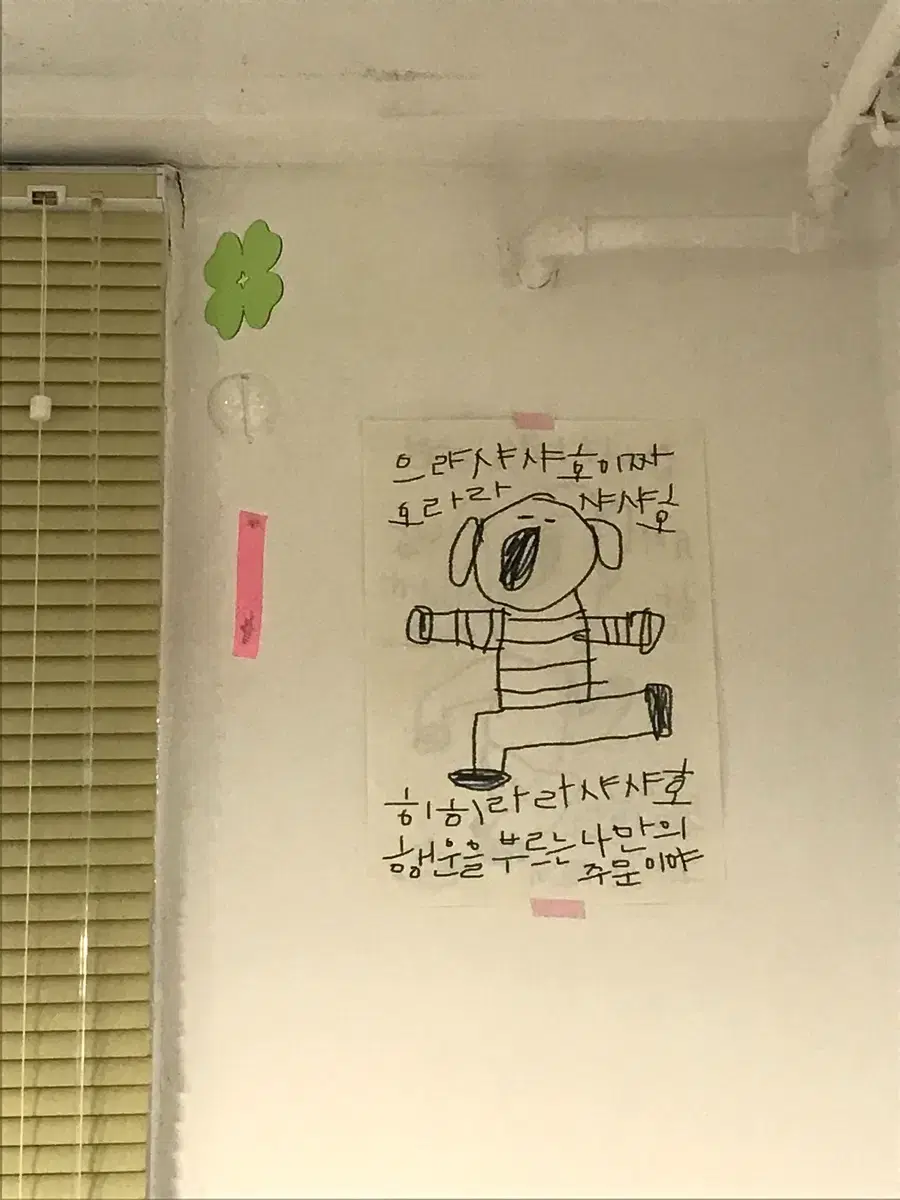 으랴샤샤호이짜
호라라 샤샤호
히히라라샤샤호
행운을 부르는 나만의
주문이야